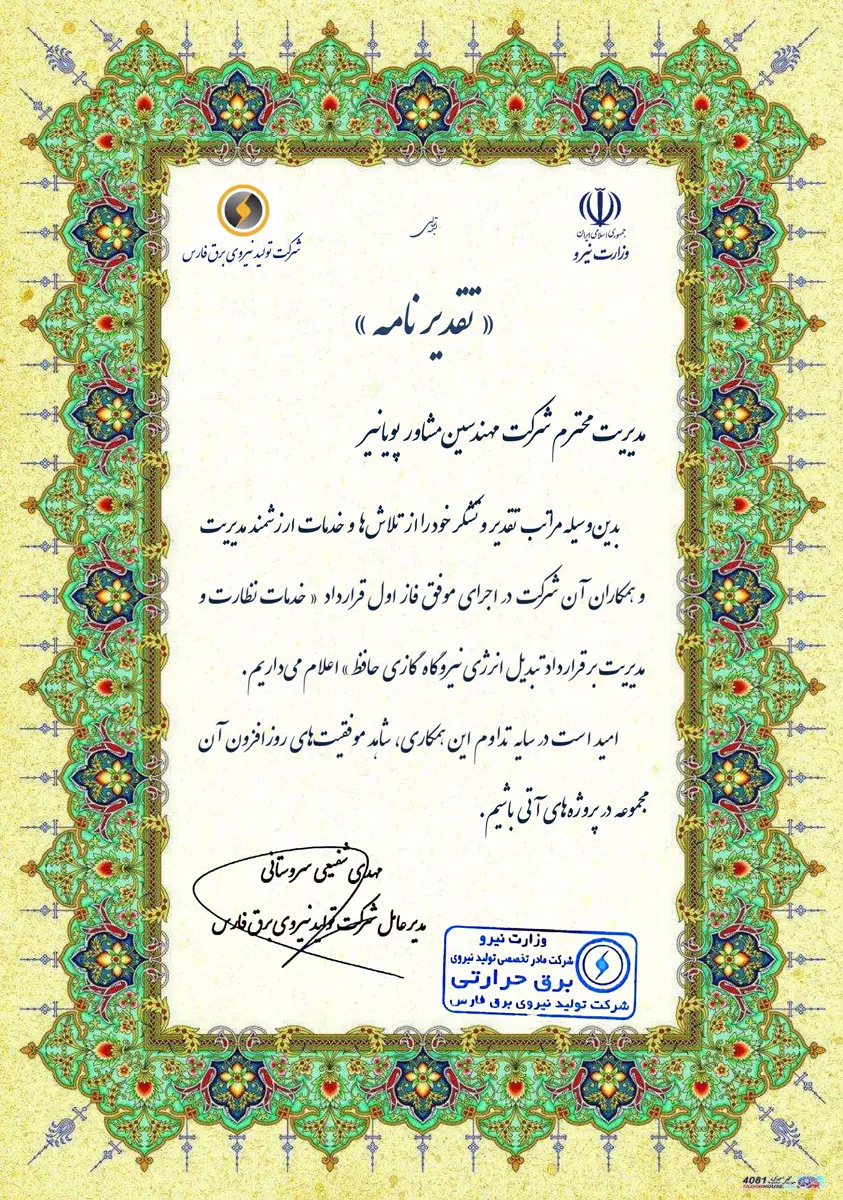 جمهوری اسلامی ایران
وزارت نیرو
شرکت تولید نیروی برق فارس
« تقدیر نامه »
مدیریت محترم شرکت مهندسین مشاور پویانیر
بدین‌وسیله مراتب تقدیر و تشکر خود را از تلاش‌ها و خدمات ارزشمند مدیریت
و همکاران آن شرکت در اجرای موفق فاز اول قرارداد « خدمات نظارت و
مدیریت بر قرارداد تبدیل انرژی نیروگاه گازی حافظ » اعلام می‌داریم.
امید است در سایه تداوم این همکاری، شاهد موفقیت‌های روزافزون آن
مجموعه در پروژه‌های آتی باشیم.
مهدی شفیعی سروستانی
مدیر عامل شرکت تولید نیروی برق فارس
وزارت نیرو
شرکت مادر تخصصی تولید نیروی
برق حرارتی
شرکت تولید نیروی برق فارس
4081